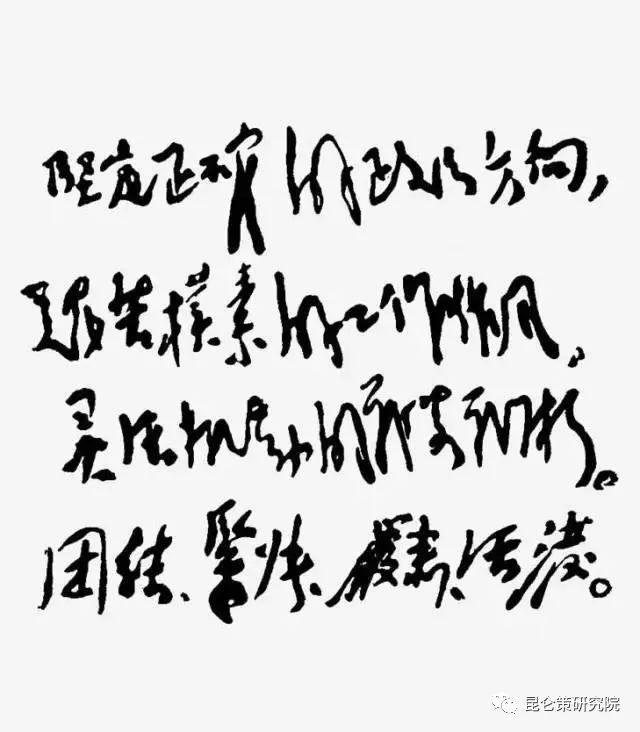 坚定正确的政治方向，
艰苦朴素的工作作风，
灵活机动的战略战术。
团结、紧张、严肃、活泼。
昆仑策研究院